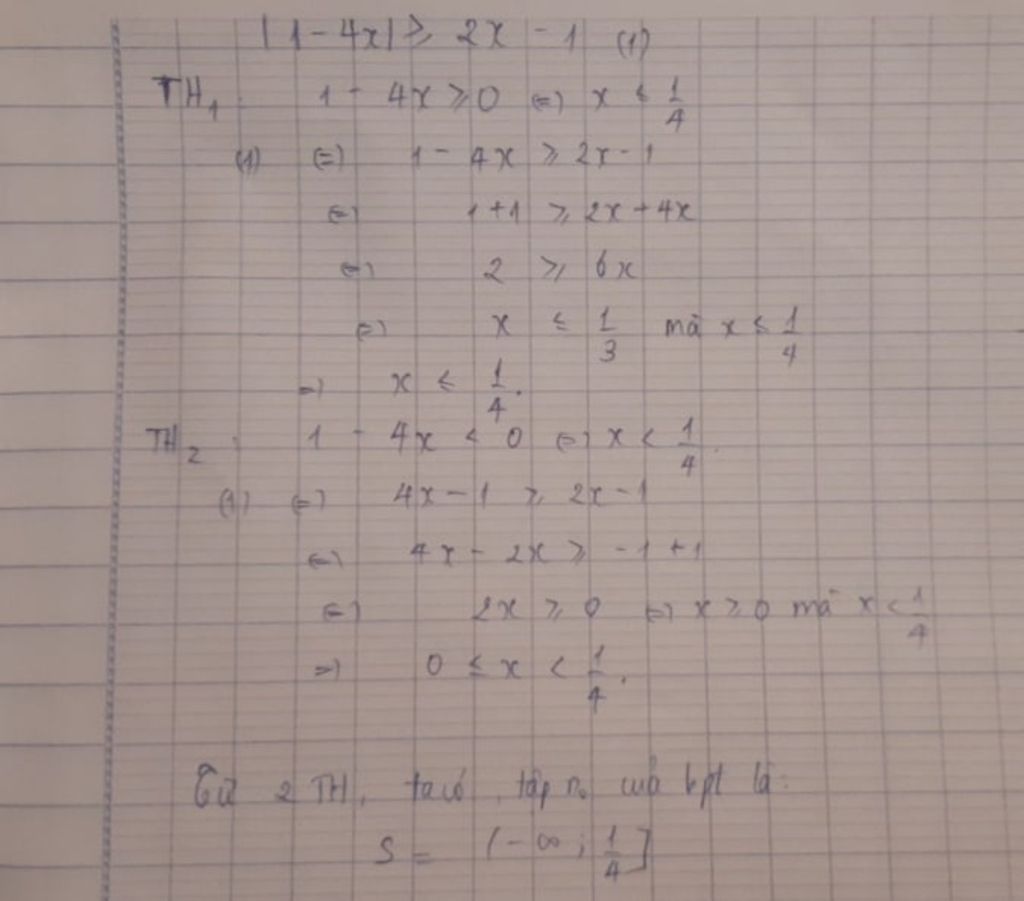 |1 - 4x| ⩾ 2x - 1 (1)
TH₁ 1 - 4x ⩾ 0 (=) x ≤ 1/4
(1) (=) 1 - 4x ⩾ 2x - 1
(=) 1 + 1 ⩾ 2x + 4x
(=) 2 ⩾ 6x
(=) x ≤ 1/3 mà x ≤ 1/4
=) x ≤ 1/4.
TH₂ : 1 - 4x < 0 (=) x < 1/4.
(1) (=) 4x - 1 ⩾ 2x - 1
(=) 4x - 2x ⩾ -1 + 1
(=) 2x ⩾ 0 (=) x ⩾ 0 mà x < 1/4
=) 0 ≤ x < 1/4.
Từ 2 TH, ta có, tập n₀ của bpt là:
S = (-∞; 1/4]